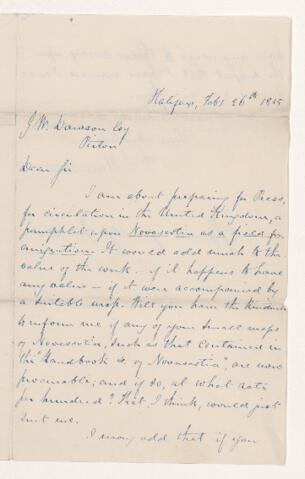 Halifax, Feby 26th 1855
J. W. Dawson Esq
Pictou
Dear Sir
I am about preparing for Press,
for circulation in the United Kingdom, a
pamphlet upon Novascotia as a field for
emigration. It would add much to the
value of the work - if it happens to have
any value - if it were accompanied by
a suitable map. Will you have the kindness
to inform me if any of your small maps
of Novascotia, such as that contained in
the "Handbook &c of Novascotia", are now
procurable; and if so, at what rate
per hundred? That, I think, would just
suit me.
I may add that if you